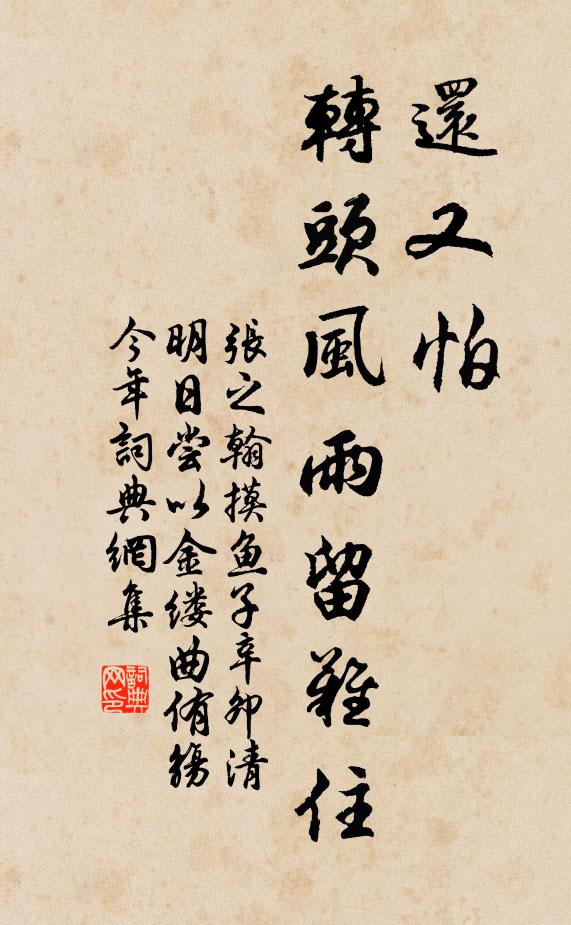 還又怕
轉頭風雨留難住
張之翰摸鱼子辛卯清
明日尝以金缕曲侑觴
今年詞典網集
詞典
网印